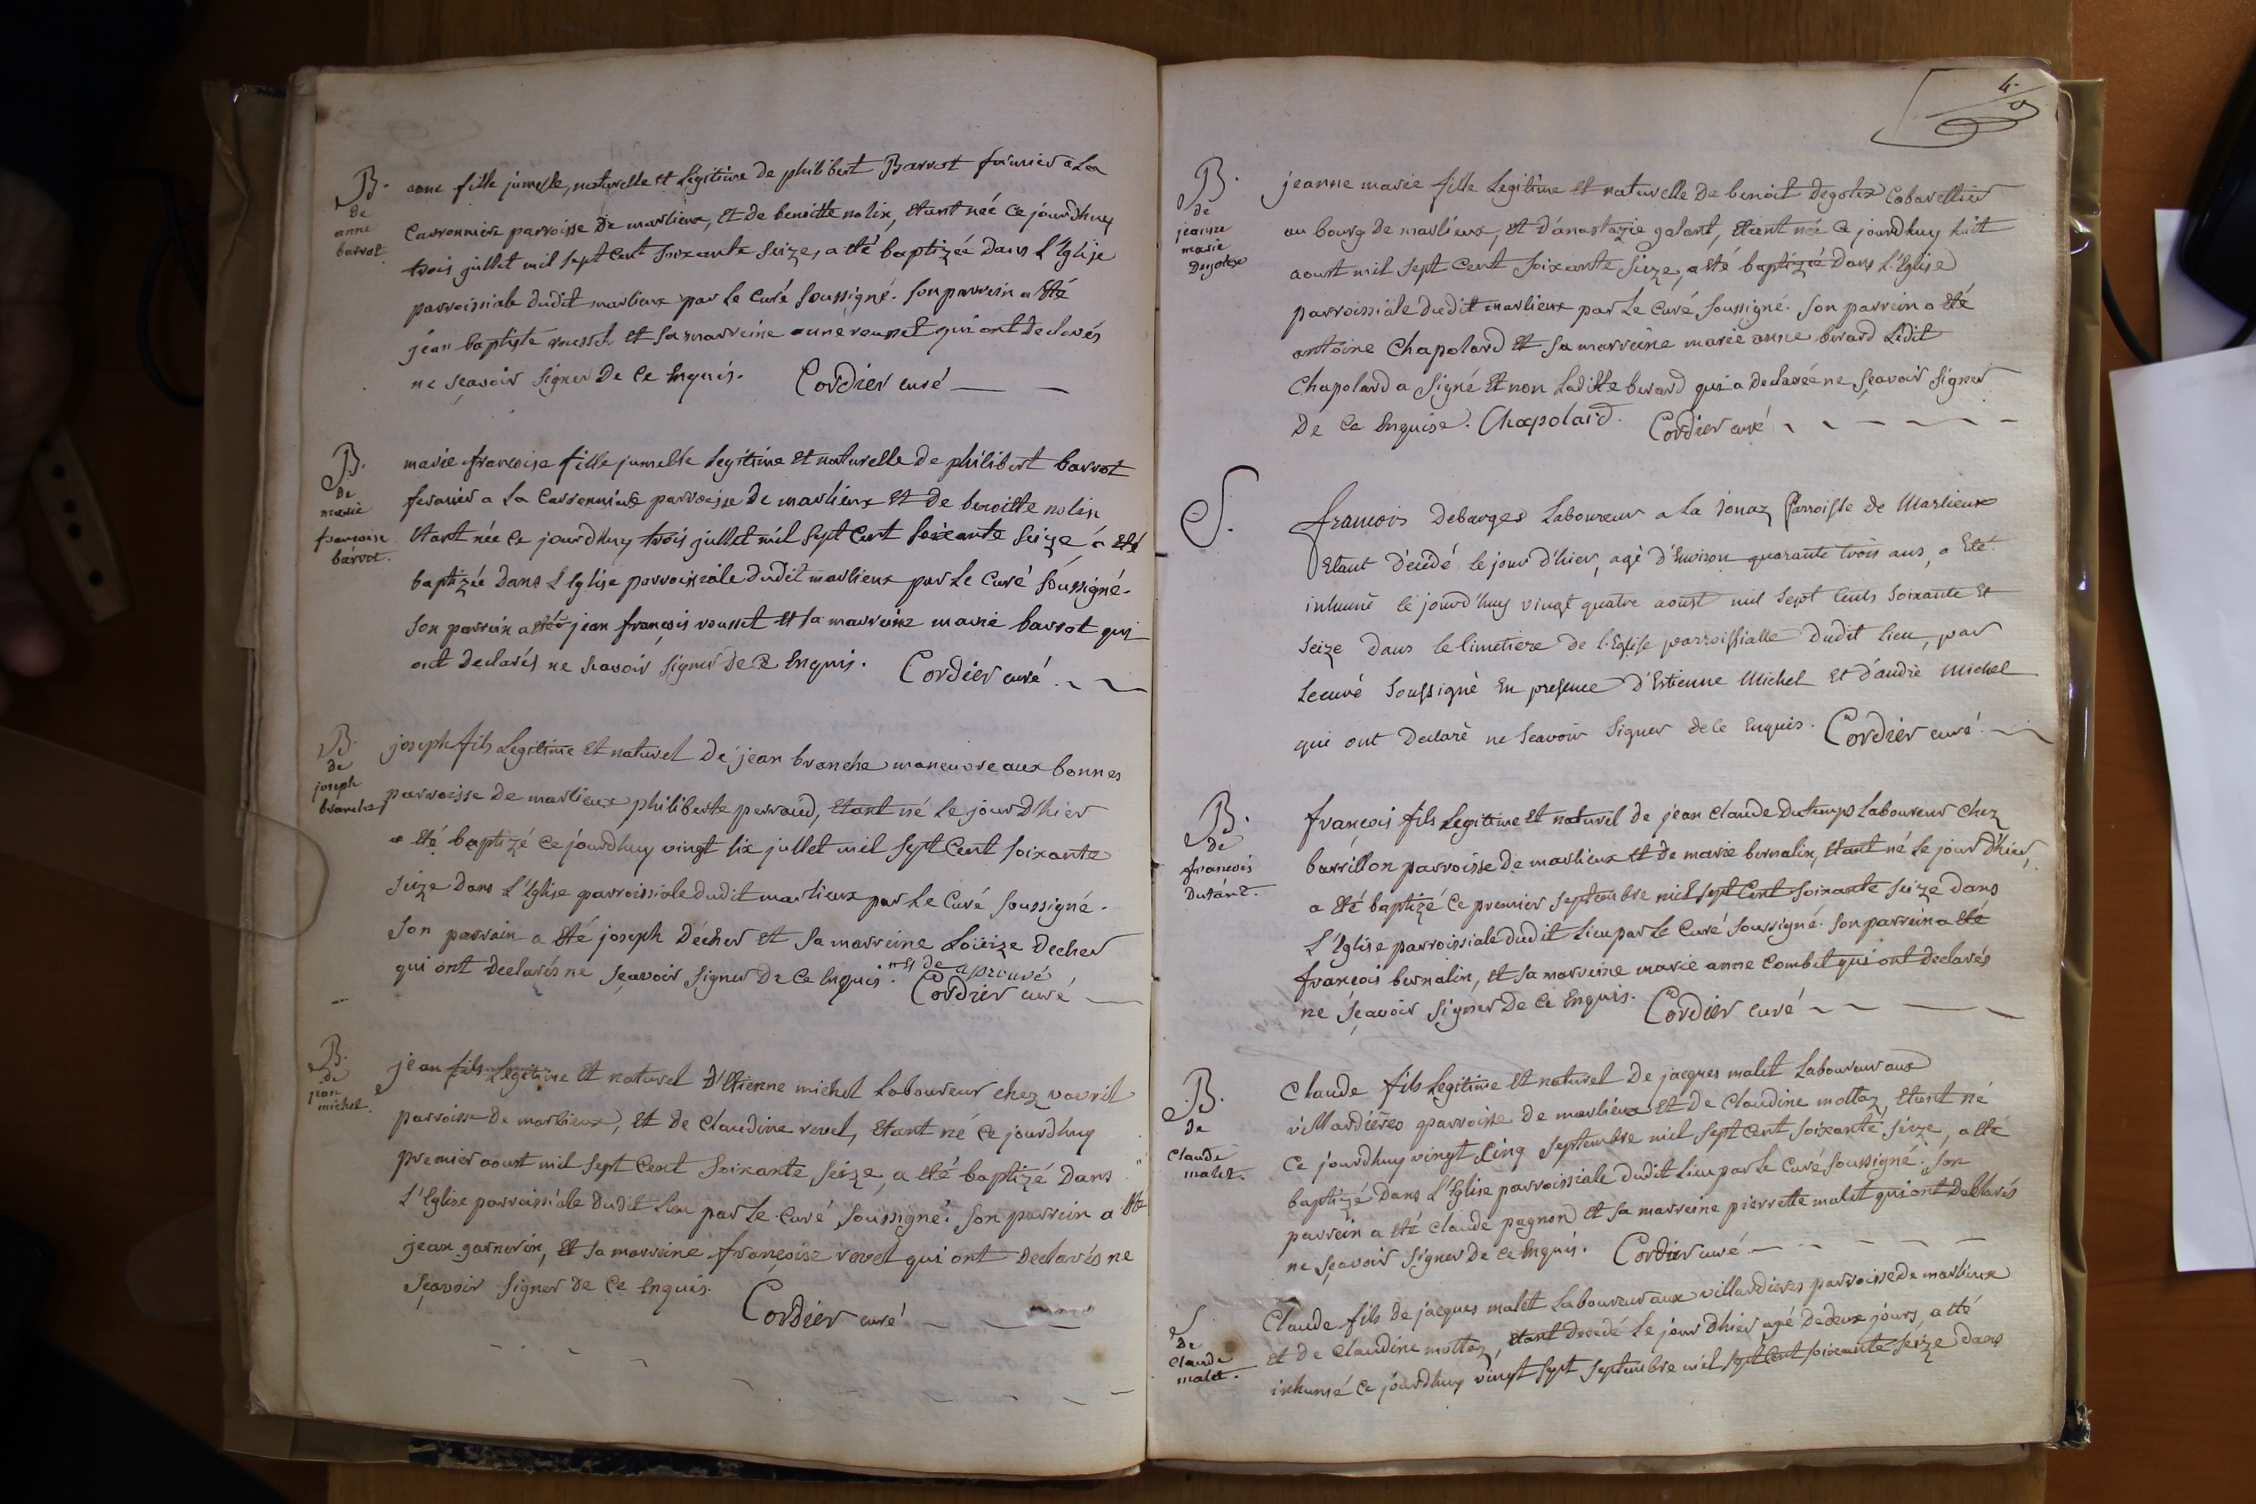 B.
de
anne
barrot
anne fille jumelle, naturelle et Legitime de philibert Barrot fermier a La
Carronniere parroisse de marlieux, et de benoitte nolin, etant née ce jourdhuy
trois juillet mil sept cent soixante seize, a eté baptizée dans L'Eglise
parroissiale dudit marlieux par le Curé soussigné. son parrein a eté
jean baptiste rousset et sa marreine anne rousset qui ont declarés
ne sçavoir signer de ce Enquis. Cordier curé
B.
de
marie
françoise
barrot.
marie françoise fille jumelle Legitime et naturelle de philibert barrot
fermier a La Carronniere parroisse de marlieux et de benoitte nolin
Etant née ce jourdhuy trois juillet mil sept cent soixante seize a eté
baptizée dans L'Eglise parroissiale dudit marlieux par le Curé soussigné.
son parrein a eté jean françois rousset et sa marreine marie barrot qui
ont declarés ne scavoir signer de ce Enquis. Cordier curé
B.
de
joseph
branche
joseph fils Legitime et naturel de jean branche manœuvre aux bonnes
parroisse de marlieux philiberte perraud, etant né le jour d'hier
a eté baptizé ce jourdhuy vingt six juillet mil sept cent soixante
seize dans L'Eglise parroissiale dudit marlieux par le Curé soussigné.
son parrain a eté joseph decher et sa marreine Loüize decher
qui ont declarés ne sçavoir signer de ce Enquis. de aprouvé
Cordier curé
B.
de
jean
michel.
jean fils Legitime et naturel d'Etienne michel Laboureur chez vavril
parroisse de marlieux, et de Claudine revel, etant né ce jourdhuy
premier aoust mil sept cent soixante seize, a eté baptizé dans
L'Eglise parroissiale dudit lieu par le Curé soussigné. son parrein a eté
jean garnerin, et sa marreine françoise revel qui ont declarés ne
sçavoir signer de ce Enquis.
Cordier curé
4.
B.
de
jeanne
marie
Degolex
jeanne marie fille Legitime et naturelle de benoit degolex Cabarettier
au bourg de marlieux, et d'anastazie galant, etant né ce jourdhuy huit
aoust mil sept cent soixante seize, a eté baptizée dans L'Eglise
parroissiale dudit marlieux par le Curé soussigné. son parrein a eté
antoine Chapolard et sa marreine marie anne berard Ledit
Chapolard a signé et non Laditte berard qui a declarée ne sçavoir signer
de ce Enquise. Chapolard. Cordier curé
S.
francois Debarges Laboureur a la Jonaz Parroisse de Marlieux
Etant décédé le jour d'hier, agé d'Environ quarante trois ans, a Eté
inhumé ce jourd'huy vingt quatre aoust mil sept cents soixante et
seize dans le Cimetiere de l'Eglise parroissialle dudit lieu, par
le curé soussigné En presence d'Estienne Michel et d'andré Michel
qui ont Declaré ne scavoir signer de ce Enquis. Cordier curé
B.
de
francois
Dutant.
françois fils Legitime et naturel de jean claude Dutemps Laboureur chez
barrillon parroisse de marlieux et de marie bernalin, etant né le jour d'hier,
a eté baptizé ce premier septembre mil sept cent soixante seize dans
L'Eglise parroissiale dudit lieu par le Curé soussigné. son parrein a eté
françois bernalin, et sa marreine marie anne Combet qui ont declarés
ne sçavoir signer de ce Enquis. Cordier curé
B.
de
Claude
malet.
Claude fils Legitime et naturel de jacques malet Laboureur aux
villardieres parroisse de marlieux et de Claudine mottaz, etant né
ce jourdhuy vingt cinq septembre mil sept cent soixante seize, a eté
baptizé dans L'Eglise parroissiale dudit lieu par le Curé soussigné. son
parrein a eté claude pagnon et sa marreine pierrette malet qui ont declarés
ne sçavoir signer de ce Enquis. Cordier curé
S
de
claude
malet.
Claude fils de jacques malet Laboureur aux villardieres parroisse de marlieux
et de Claudine mottaz, etant decedé le jour dhier agé de deux jours, a eté
inhumé ce jourdhuy vingt sept septembre mil sept cent soixante seize dans